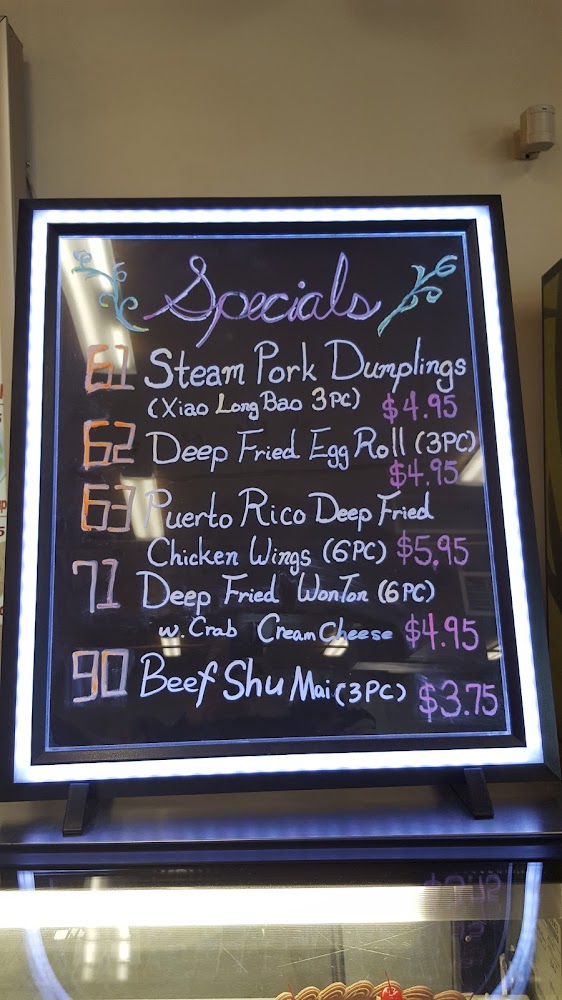 Specials
61 Steam Pork Dumplings
(Xiao Long Bao 3PC) $4.95
62 Deep Fried Egg Roll (3PC)
$4.95
63 Puerto Rico Deep Fried
Chicken Wings (6PC) $5.95
71 Deep Fried WonTon (6PC)
w. Crab Cream Cheese $4.95
90 Beef Shu Mai (3PC) $3.75